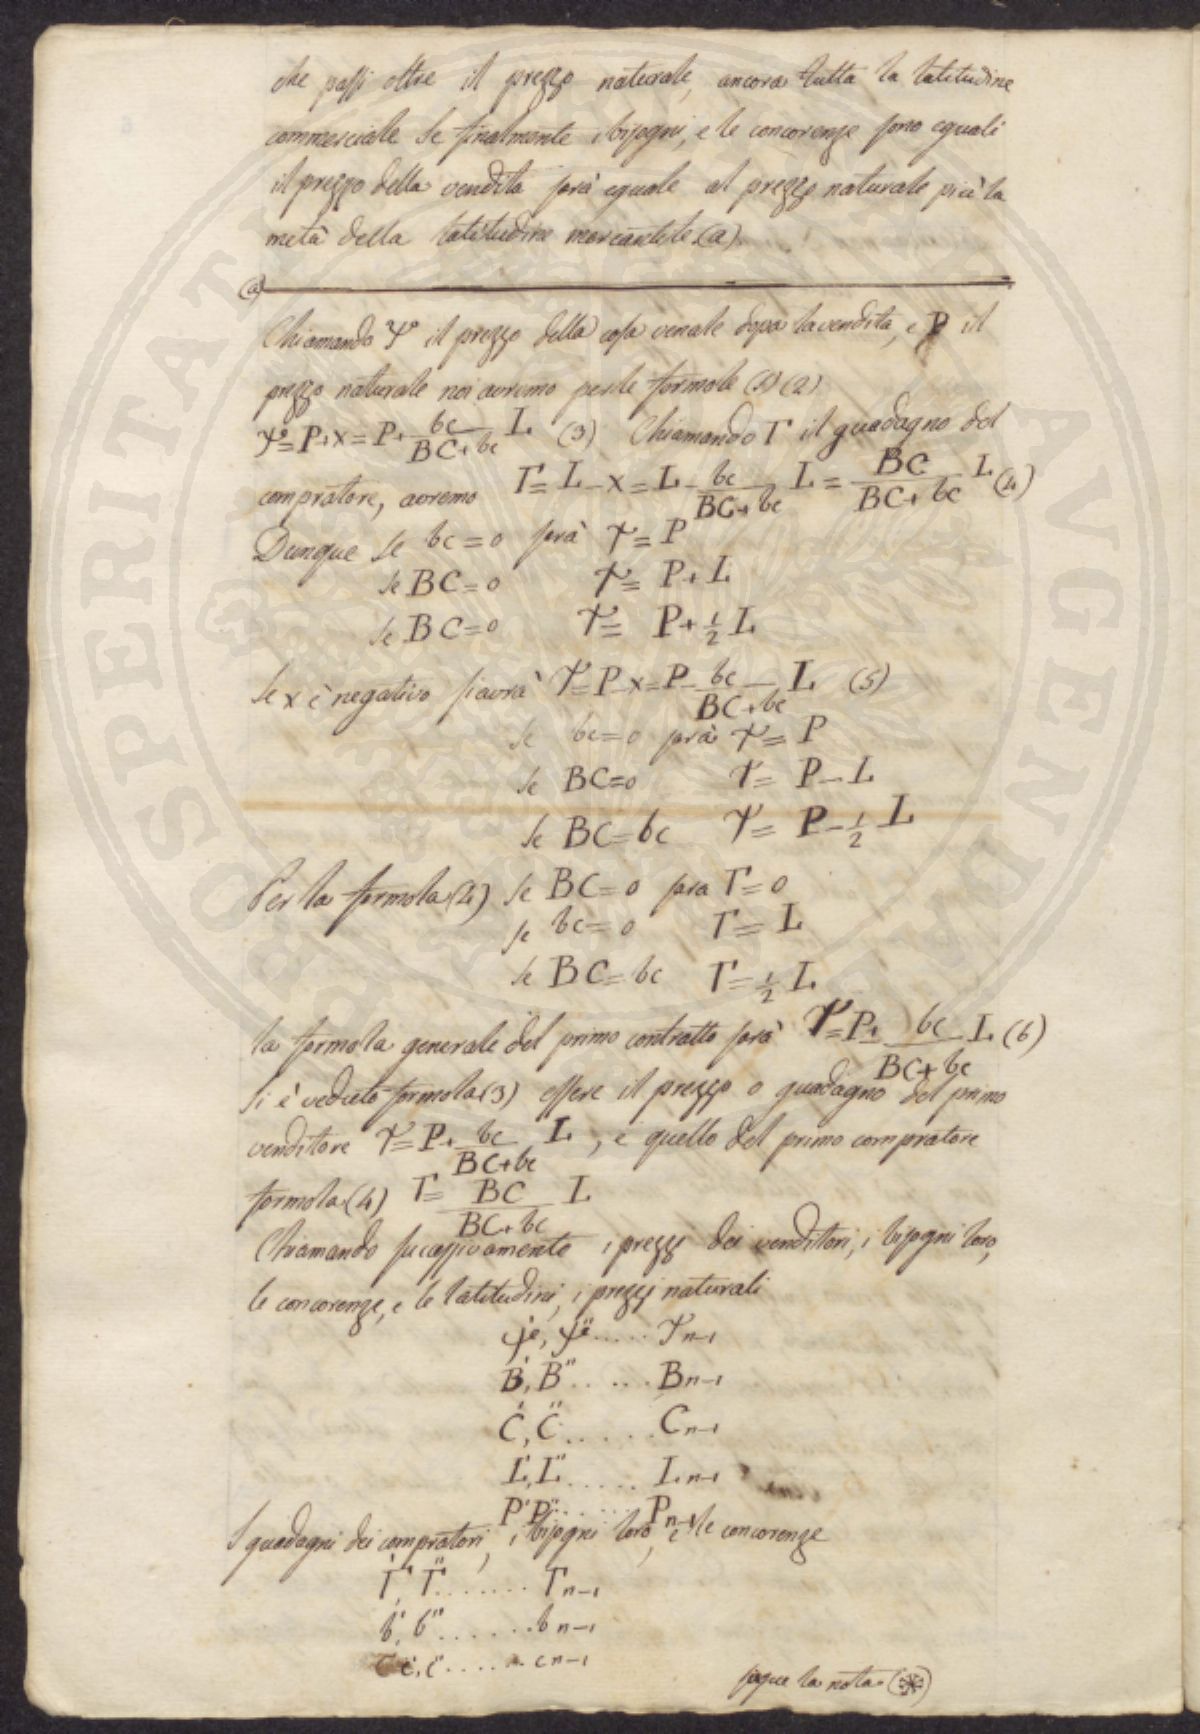 che passi oltre il prezzo naturale, ancora tutta la latitudine
commerciale se finalmente i bisogni, e le concorenze sono eguali
il prezzo della vendita sarà eguale al prezzo naturale più la
metà della latitudine mercantile (a)
(a)
Chiamando Ψ il prezzo della cosa venale dopo la vendita, e P il
prezzo naturale noi avremo per le formole (1) (2)
Ψ=P+x=P+ bc/BC+bc L (3) Chiamando Γ il guadagno del
compratore, avremo Γ=L-x=L- bc/BC+bc L = BC/BC+bc L (4)
Dunque se bc=0 sarà Ψ=P
se BC=0 Ψ= P+L
se BC=0 Ψ= P+½L
se x è negativo si avrà Ψ=P-x=P- bc/BC+bc L (5)
se bc=0 sarà Ψ= P
se BC=0 Ψ= P-L
se BC=bc Ψ= P-½L
Per la formola (4) se BC=0 sara Γ=0
se bc=0 Γ=L
se BC=bc Γ=½L
la formola generale del primo contratto sarà Ψ=P± bc/BC+bc L (6)
Si è veduto formola (3) essere il prezzo o guadagno del primo
venditore Ψ=P+ bc/BC+bc L, e quello del primo compratore
formola (4) Γ= BC/BC+bc L
Chiamando successivamente i prezzi dei venditori, i bisogni loro,
le concorenze, e le latitudini, i prezzi naturali
Ψ', Ψ''..... Ψn-1
B', B''..... Bn-1
C', C''..... Cn-1
L', L''..... Ln-1
P' P''...... Pn-1
I guadagni dei compratori, i bisogni loro, e le concorenze
Γ', Γ''....... Γn-1
b', b''.......bn-1
c', c''....... cn-1
segue la nota (*)
PROSPERITATI AVGENDAE